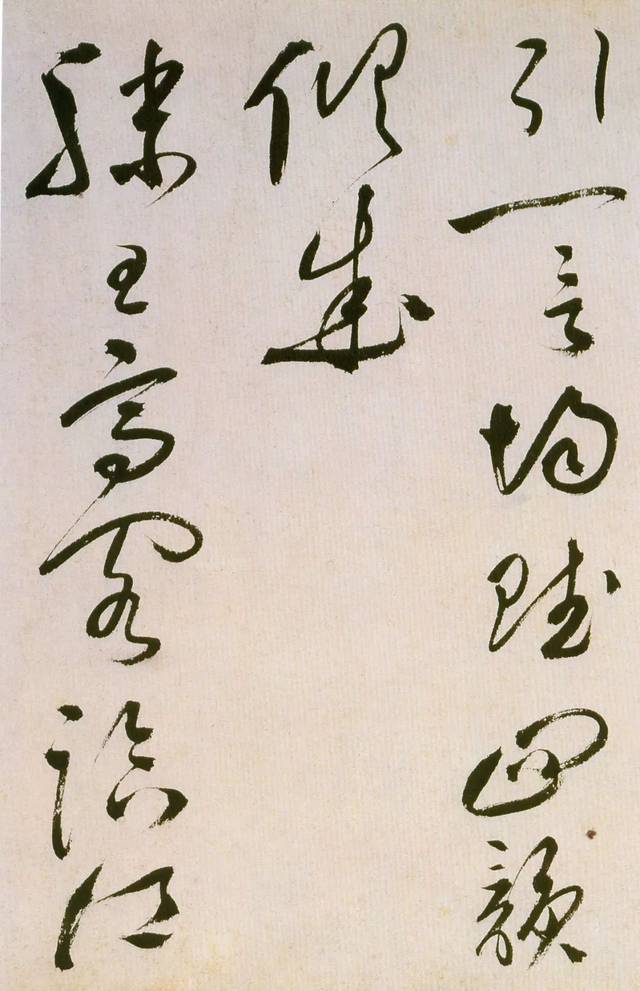 引一言均賦四韻
俱成
滕王高閣臨江